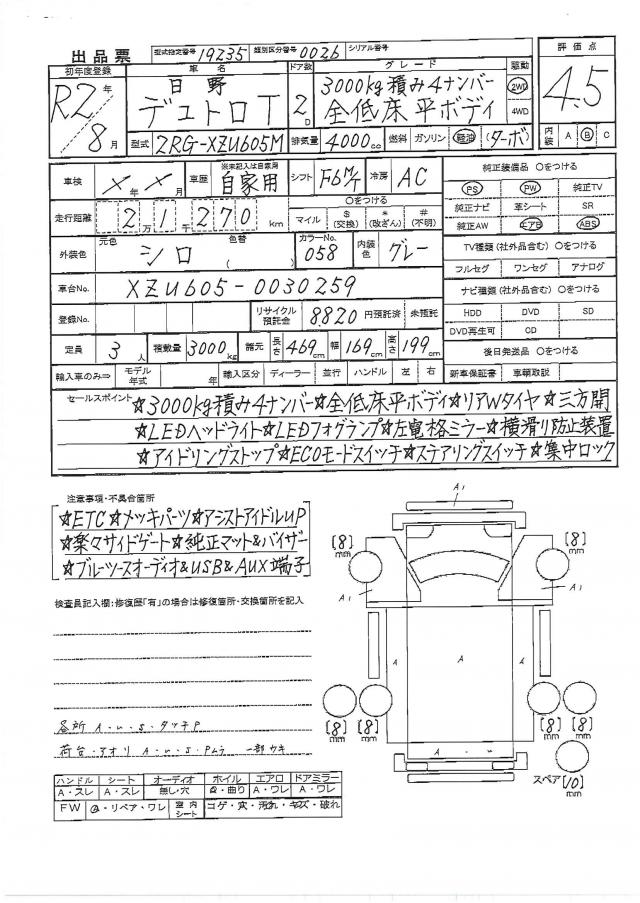 出品票 型式指定番号 19235 類別区分番号 0026 シリアル番号
初年度登録 車名 ドア数 グレード 駆動 評価点
R2年 8月 日野 デュトロT 2D 3000kg積み4ナンバー 全低床平ボディ 2WD 4WD 4.5
型式 2RG-XZU605M 排気量 4000cc 燃料 ガソリン 軽油 (ターボ) 内装 A B C
車検 ×年×月 車歴 ※未記入は自家用 自家用 シフト F6M/T 冷房 AC 純正装備品 ○をつける
PS PW 純正TV
走行距離 2万1千270km ○をつける マイル $(交換) *(改ざん) #(不明) 純正ナビ 革シート SR
純正AW エアB ABS
外装色 元色 シロ 色替 ( ) カラーNo. 058 内装色 グレー TV種類(社外品含む) ○をつける
フルセグ ワンセグ アナログ
車台No. XZU605-0030259 ナビ種類(社外品含む) ○をつける
登録No. リサイクル預託金 8820 円預託済 未預託 HDD DVD SD
DVD再生可 CD
定員 3人 積載量 3000kg 諸元 長さ 469cm 幅 169cm 高さ 199cm 後日発送品 ○をつける
輸入車のみ⇒ モデル年式 年 輸入区分 ディーラー 並行 ハンドル 左 右 新車保証書 車輌取説
セールスポイント ☆3000kg積み4ナンバー☆全低床平ボディ☆リアWタイヤ☆三方開
☆LEDヘッドライト☆LEDフォグランプ☆左電格ミラー☆横滑り防止装置
☆アイドリングストップ☆ECOモードスイッチ☆ステアリングスイッチ☆集中ロック
注意事項・不具合箇所
☆ETC☆メッキパーツ☆アシストアイドルUP
☆楽々サイドゲート☆純正マット&バイザー
☆ブルーツースオーディオ&USB&AUX端子
検査員記入欄:修復歴「有」の場合は修復箇所・交換箇所を記入
各所 A・U・S・タッチP
荷台・アオリ A・U・S・Pムラ 一部カキ
ハンドル シート オーディオ ホイル エアロ ドアミラー
A・スレ A・スレ 無し・穴 A・曲り A・ワレ A・ワレ
FW A・リペア・ワレ 室内シート コゲ・穴・汚れ・キズ・破れ
A1
[8]mm [8]mm
A1 A1
A A A
[8]mm [8]mm [8]mm [8]mm
A・U
スペア [10]mm